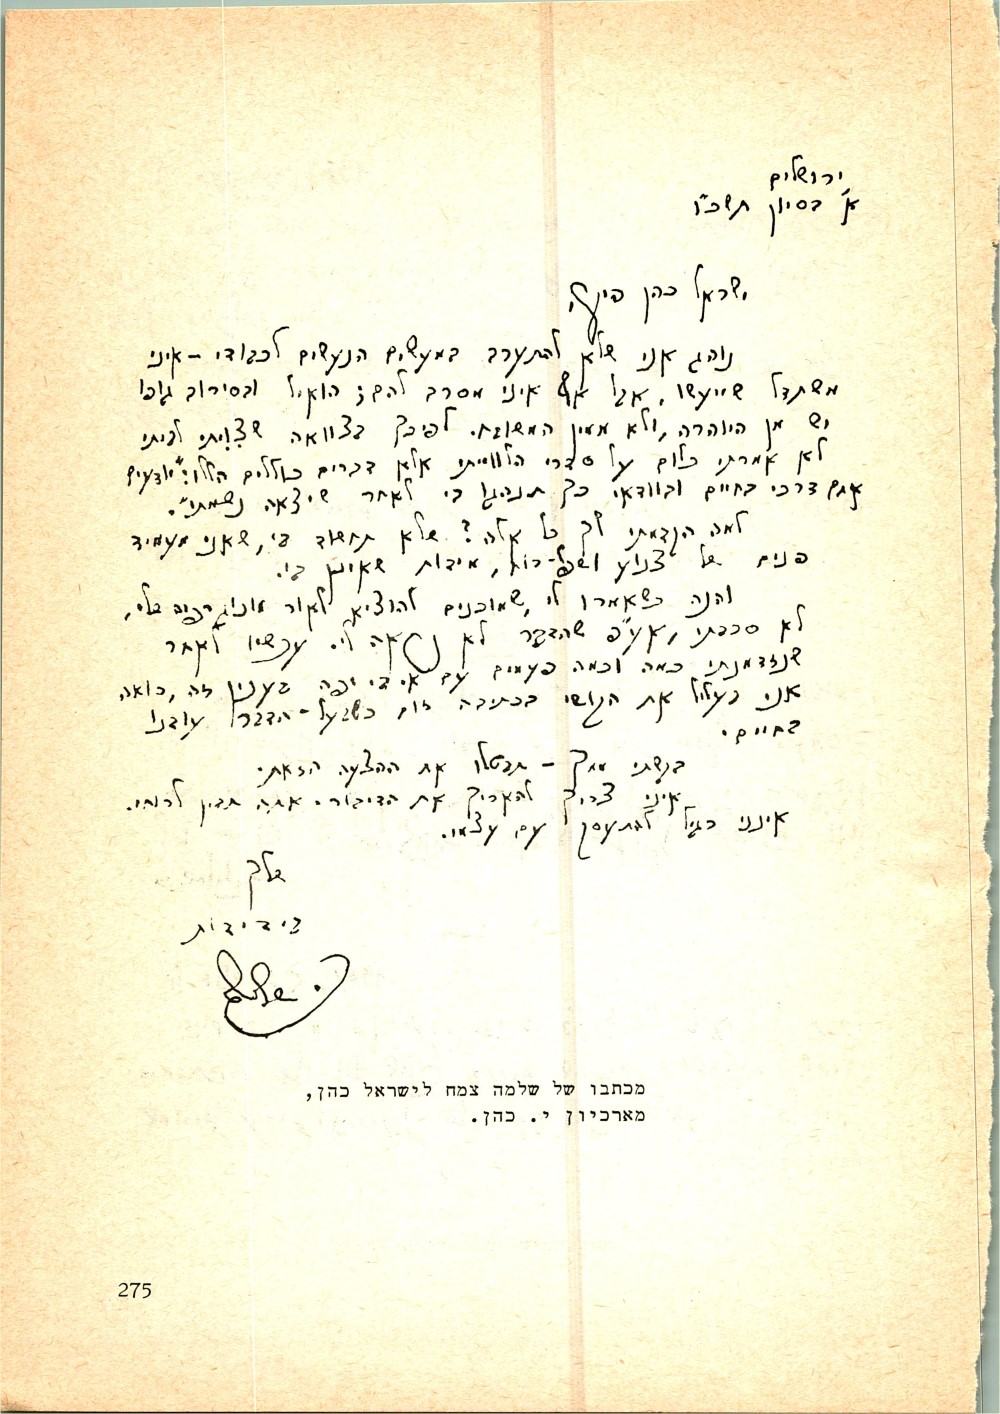 ירושלים
א' בסיון תשכ"ו
ישראל כהן היקר,
נוהג אני שלא להתערב במעשים הנעשים לכבודי – איני
משתדל שייעשו, אבל אף איני מסרב להם; הואיל ובסירוב גופו
יש מן היוהרה, ולא ממין המשובח. לפיכך בצוואה שצוויתי לביתי
לא אמרתי כלום על סדרי הלווייתי אלא דברים כוללים הללו: "יודעים
אתם דרכי בחיים ובוודאי כך תנהגו בי לאחר שיצאה נשמתי".
למה הקדמתי לך כל אלה? שלא תחשוד בי, שאני מעמיד
פנים של צנוע ושפל-רוח, מידות שאינן בי.
והנה כשאמרו לי, שמוכנים להוציא לאור מונוגרפיה עלי,
לא סרבתי, אע"פ שהדבר לא נראה לי. עכשיו לאחר
שנזדמנתי כמה וכמה פעמים עם א. ב. יפה בענין זה, רואה
אני בעליל את הקושי בכתיבה זו, כשבעל-הדברים עודנו
בחיים.
בקשתי ממך – תבטלו את ההצעה הזאת.
איני צריך להאריך את הדיבור. אתה תבין לרוחי.
אינני רגיל להתעסק עם עצמי.
שלך
בידידות
ש. צמח
מכתבו של שלמה צמח לישראל כהן,
מארכיון י. כהן.
275